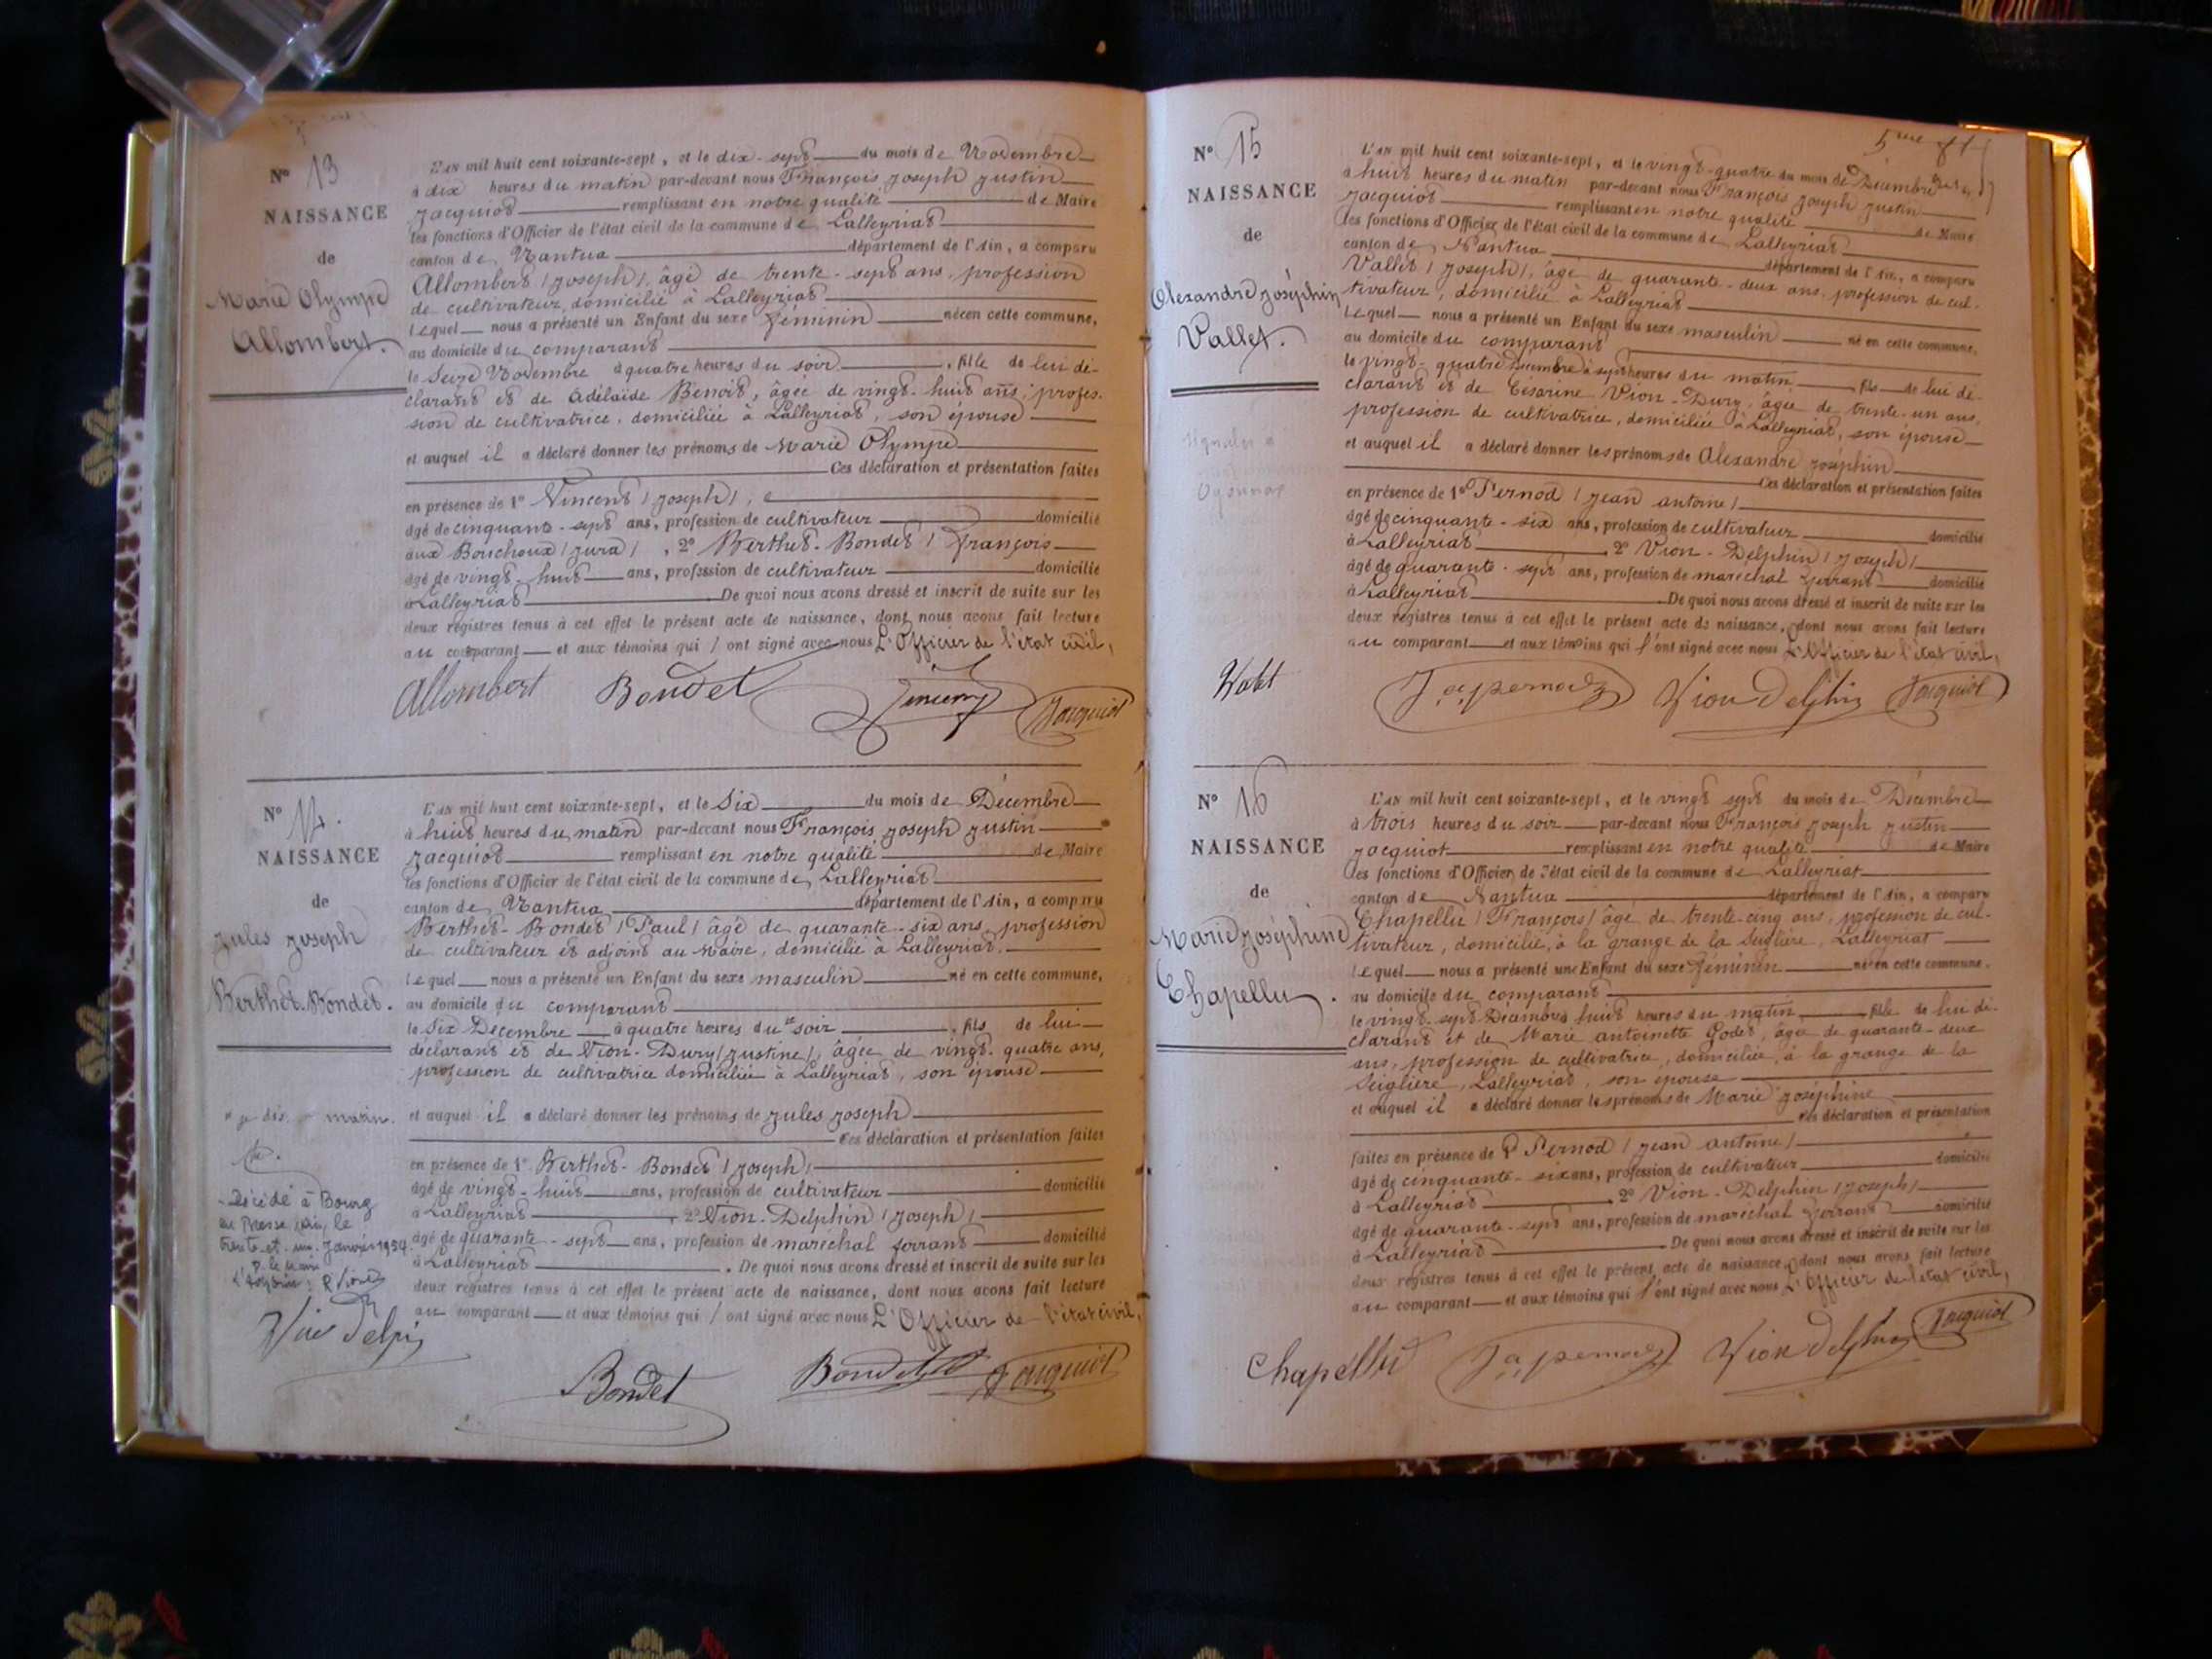 N° 13
NAISSANCE
de
Marie Olympe
Allombert.
L'AN mil huit cent soixante-sept, et le dix-sept du mois de Novembre
à dix heures du matin par-devant nous François Joseph Justin
Jacquiot remplissant en notre qualité de Maire
les fonctions d'Officier de l'état civil de la commune de Lalleyriat
canton de Nantua département de l'Ain, a comparu
Allombert (Joseph), âgé de trente-sept ans, profession
de cultivateur, domicilié à Lalleyriat
Lequel nous a présenté un Enfant du sexe féminin née en cette commune,
au domicile du comparant
le Seize Novembre à quatre heures du soir, fille de lui dé-
clarant et de Adélaïde Benoit, âgée de vingt-huit ans, profes-
sion de cultivatrice, domiciliée à Lalleyriat, son épouse
et auquel il a déclaré donner les prénoms de Marie Olympe
Ces déclaration et présentation faites
en présence de 1° Vincent (Joseph),
âgé de cinquante-sept ans, profession de cultivateur domicilié
aux Bouchoux (Jura), 2° Berthet-Bondet (François
âgé de vingt-huit ans, profession de cultivateur domicilié
à Lalleyriat De quoi nous avons dressé et inscrit de suite sur les
deux registres tenus à cet effet le présent acte de naissance, dont nous avons fait lecture
au comparant et aux témoins qui / ont signé avec nous L'Officier de l'état civil,
Allombert Bondet Vincent Jacquiot
N° 14.
NAISSANCE
de
Jules Joseph
Berthet-Bondet.
L'AN mil huit cent soixante-sept, et le Six du mois de Décembre
à huit heures du matin par-devant nous François Joseph Justin
Jacquiot remplissant en notre qualité de Maire
les fonctions d'Officier de l'état civil de la commune de Lalleyriat
canton de Nantua département de l'Ain, a comparu
Berthet-Bondet (Paul) âgé de quarante-six ans, profession
de cultivateur et adjoint au Maire, domicilié à Lalleyriat.
Lequel nous a présenté un Enfant du sexe masculin né en cette commune,
au domicile du comparant
le Six Décembre à quatre heures du soir, fils de lui
déclarant et de Vion-Dury (Justine), âgée de vingt-quatre ans,
profession de cultivatrice domiciliée à Lalleyriat, son épouse
et auquel il a déclaré donner les prénoms de Jules Joseph
Ces déclaration et présentation faites
en présence de 1° Berthet-Bondet (Joseph)
âgé de vingt-huit ans, profession de cultivateur domicilié
à Lalleyriat, 2° Vion-Delphin (Joseph)
âgé de quarante-sept ans, profession de maréchal ferrant domicilié
à Lalleyriat. De quoi nous avons dressé et inscrit de suite sur les
deux registres tenus à cet effet le présent acte de naissance, dont nous avons fait lecture
au comparant et aux témoins qui / ont signé avec nous L'Officier de l'état civil,
matin.
Décédé à Bourg
en Bresse (Ain) le
trente-et-un Janvier 1954.
P. le Maire
L'Adjoint:
Vion Delphin Bondet Bondet Jacquiot
5me
N° 15
NAISSANCE
de
Alexandre Joséphin
Vallet.
Oyonnax
L'AN mil huit cent soixante-sept, et le vingt-quatre du mois de Décembre
à huit heures du matin par-devant nous François Joseph Justin
Jacquiot remplissant en notre qualité de Maire
les fonctions d'Officier de l'état civil de la commune de Lalleyriat
canton de Nantua département de l'Ain, a comparu
Vallet (Joseph), âgé de quarante-deux ans, profession de cul-
tivateur, domicilié à Lalleyriat
Lequel nous a présenté un Enfant du sexe masculin né en cette commune,
au domicile du comparant
le vingt-quatre Décembre à sept heures du matin, fils de lui dé-
clarant et de Césarine Vion-Dury, âgée de trente-un ans,
profession de cultivatrice, domiciliée à Lalleyriat, son épouse
et auquel il a déclaré donner les prénoms de Alexandre Joséphin
Ces déclaration et présentation faites
en présence de 1° Pernod (Jean Antoine)
âgé de cinquante-six ans, profession de cultivateur domicilié
à Lalleyriat, 2° Vion-Delphin (Joseph)
âgé de quarante-sept ans, profession de maréchal ferrant domicilié
à Lalleyriat. De quoi nous avons dressé et inscrit de suite sur les
deux registres tenus à cet effet le présent acte de naissance, dont nous avons fait lecture
au comparant et aux témoins qui l'ont signé avec nous L'Officier de l'état civil,
J. a. pernod Vion Delphin Jacquiot
N° 16
NAISSANCE
de
Marie Joséphine
Chapellu.
L'AN mil huit cent soixante-sept, et le vingt sept du mois de Décembre
à trois heures du soir par-devant nous François Joseph Justin
Jacquiot remplissant en notre qualité de Maire
les fonctions d'Officier de l'état civil de la commune de Lalleyriat
canton de Nantua département de l'Ain, a comparu
Chapellu (François) âgé de trente-cinq ans, profession de cul-
tivateur, domicilié, à la grange de la Seiglière, Lalleyriat
Lequel nous a présenté un Enfant du sexe féminin née en cette commune.
au domicile du comparant
le vingt-sept Décembre à huit heures du matin, fille de lui dé-
clarant et de Marie Antoinette Godet, âgée de quarante-deux
ans, profession de cultivatrice, domiciliée, à la grange de la
Seiglière, Lalleyriat, son épouse
et auquel il a déclaré donner les prénoms de Marie Joséphine
Ces déclaration et présentation
faites en présence de 1° Pernod (Jean Antoine)
âgé de cinquante-six ans, profession de cultivateur domicilié
à Lalleyriat, 2° Vion-Delphin (Joseph)
âgé de quarante-sept ans, profession de maréchal ferrant domicilié
à Lalleyriat. De quoi nous avons dressé et inscrit de suite sur les
deux registres tenus à cet effet le présent acte de naissance, dont nous avons fait lecture
au comparant et aux témoins qui l'ont signé avec nous L'Officier de l'état civil,
Chapellu J. a. pernod Vion Delphin Jacquiot